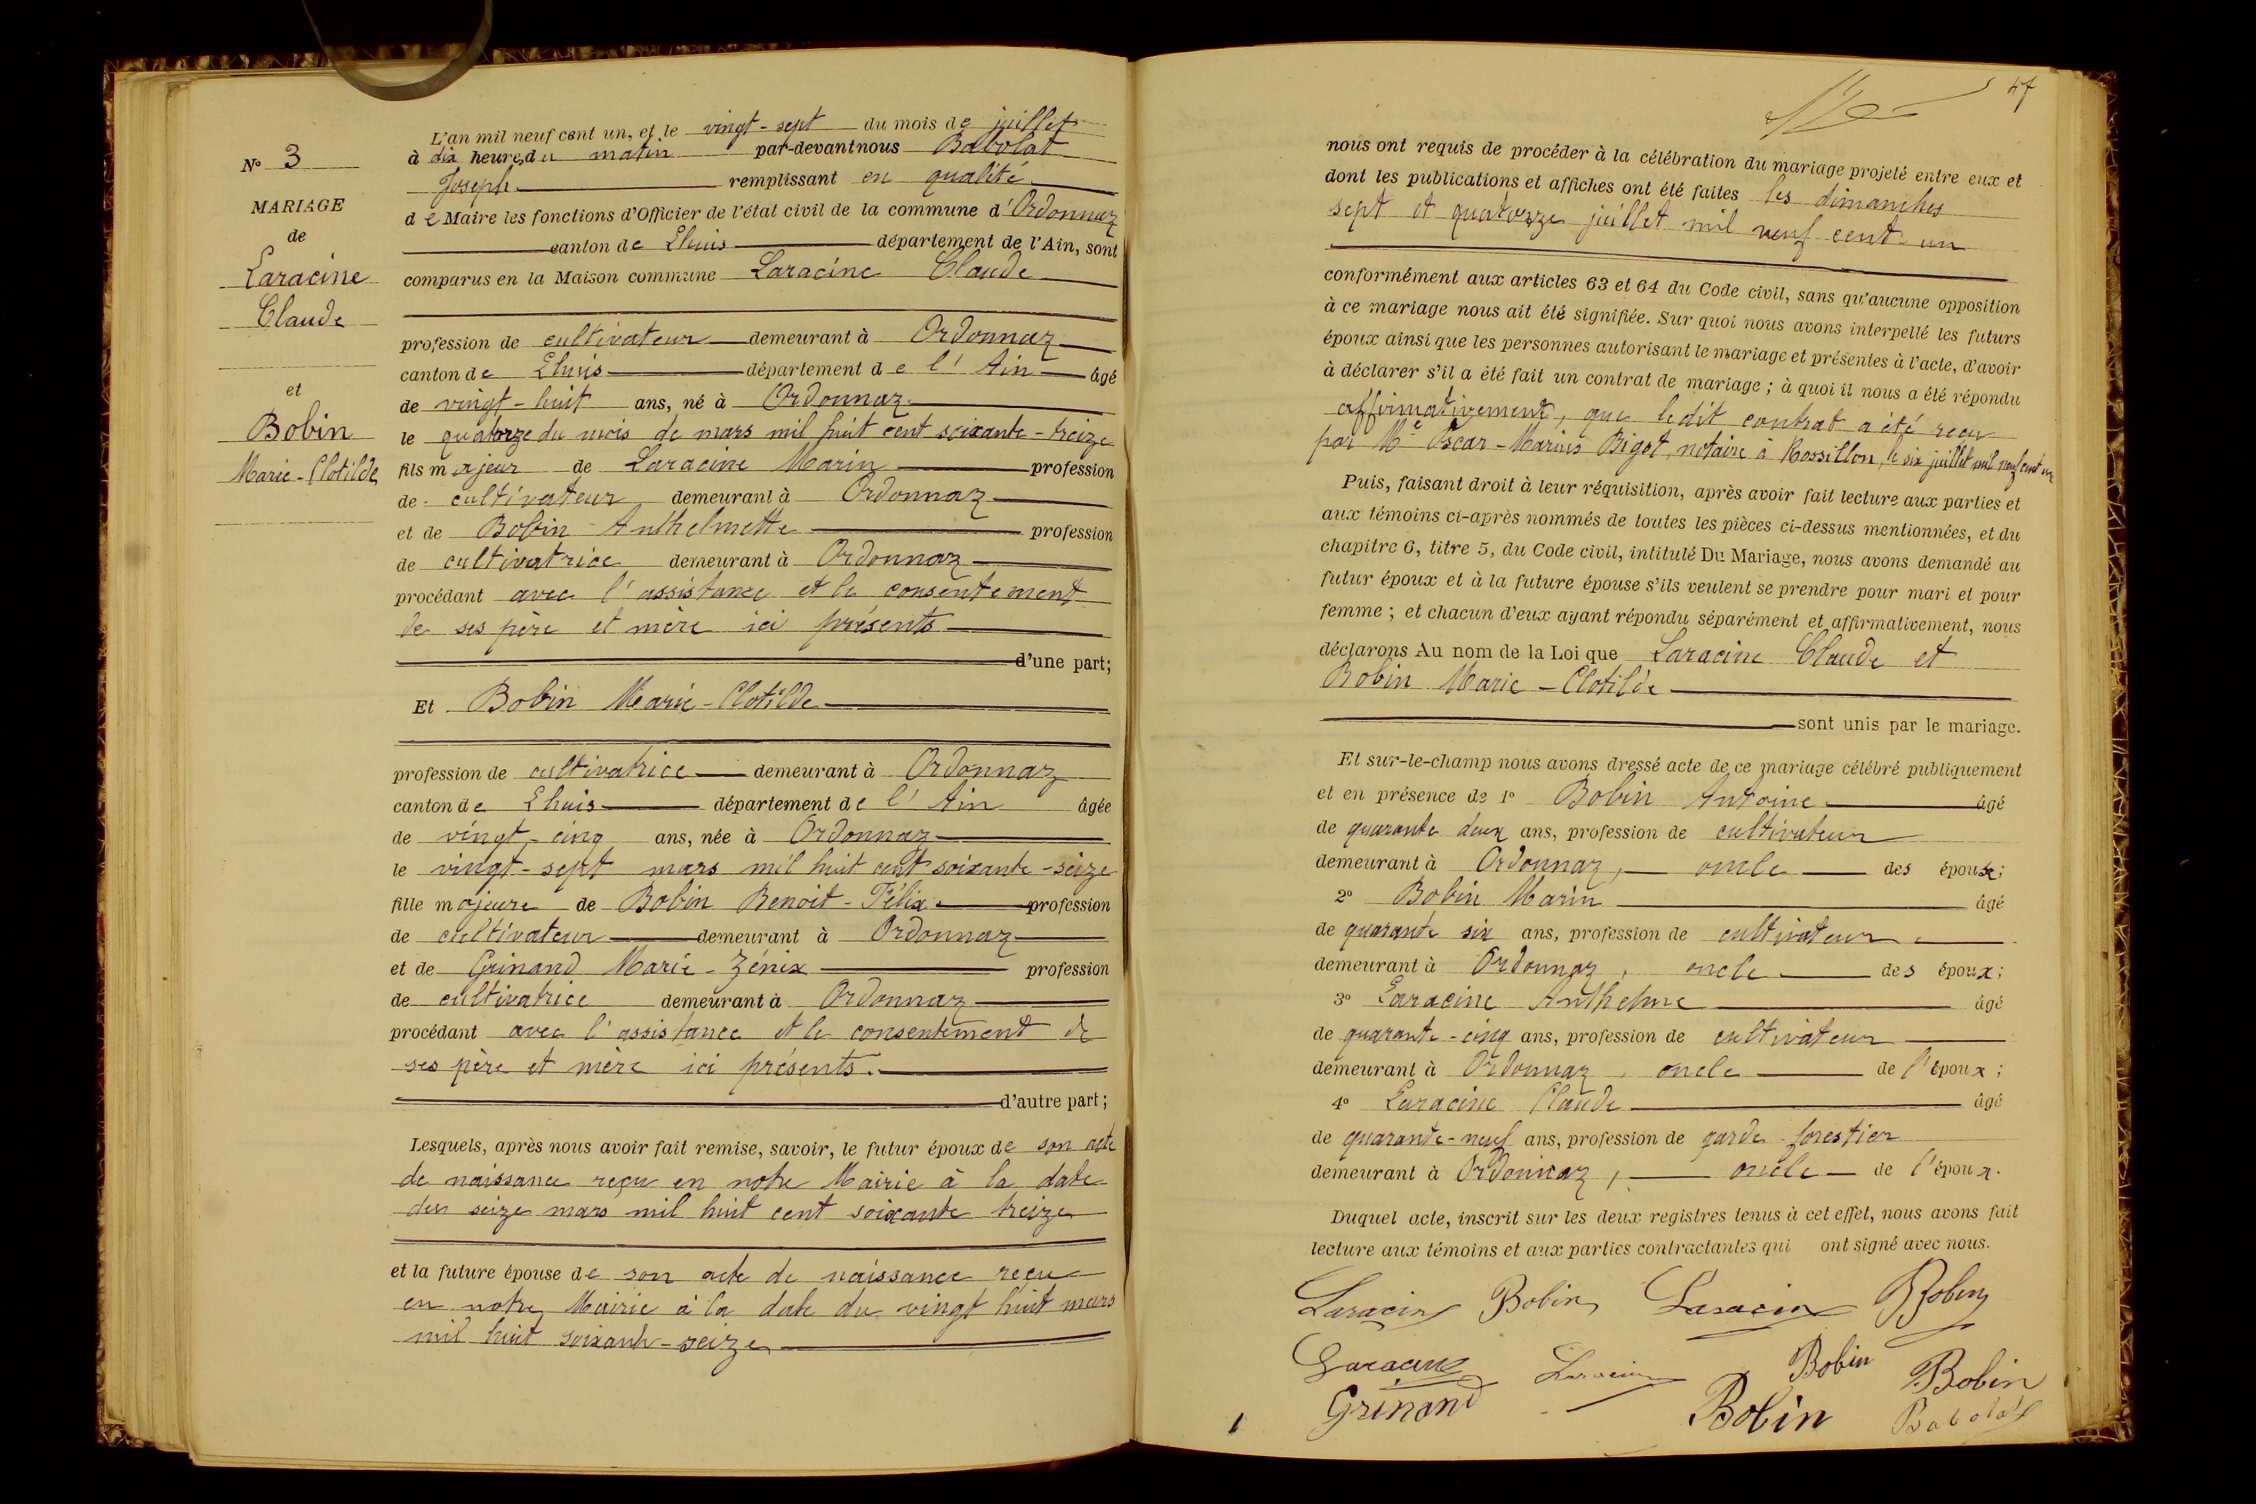 L'an mil neuf cent un, et le vingt-sept du mois de juillet
à dix heures du matin par-devant nous Babolat
Joseph remplissant en qualité
de Maire les fonctions d'Officier de l'état civil de la commune d'Ordonnaz
canton de Lhuis département de l'Ain, sont
comparus en la Maison commune Laracine Claude
profession de cultivateur demeurant à Ordonnaz
canton de Lhuis département de l'Ain âgé
de vingt-huit ans, né à Ordonnaz
le quatorze du mois de mars mil huit cent soixante-treize
fils majeur de Laracine Marin profession
de cultivateur demeurant à Ordonnaz
et de Bobin Anthelmette profession
de cultivatrice demeurant à Ordonnaz
procédant avec l'assistance et le consentement
de ses père et mère ici présents
d'une part;
Et Bobin Marie-Clotilde
profession de cultivatrice demeurant à Ordonnaz
canton de Lhuis département de l'Ain âgée
de vingt-cinq ans, née à Ordonnaz
le vingt-sept mars mil huit cent soixante-seize
fille majeure de Bobin Benoit-Félix profession
de cultivateur demeurant à Ordonnaz
et de Grinand Marie-Zénix profession
de cultivatrice demeurant à Ordonnaz
procédant avec l'assistance et le consentement de
ses père et mère ici présents.
d'autre part;
Lesquels, après nous avoir fait remise, savoir, le futur époux de son acte
de naissance reçu en notre Mairie à la date
du seize mars mil huit cent soixante treize
et la future épouse de son acte de naissance reçu
en notre Mairie à la date du vingt huit mars
mil huit soixante-seize
No 3
MARIAGE
de
Laracine
Claude
et
Bobin
Marie-Clotilde
47
nous ont requis de procéder à la célébration du mariage projeté entre eux et
dont les publications et affiches ont été faites les dimanches
sept et quatorze juillet mil neuf cent un
conformément aux articles 63 et 64 du Code civil, sans qu'aucune opposition
à ce mariage nous ait été signifiée. Sur quoi nous avons interpellé les futurs
époux ainsi que les personnes autorisant le mariage et présentes à l'acte, d'avoir
à déclarer s'il a été fait un contrat de mariage; à quoi il nous a été répondu
affirmativement, que ledit contrat a été reçu
par Me Oscar-Marius Bigot, notaire à Rossillon, le six juillet mil neuf cent un
Puis, faisant droit à leur réquisition, après avoir fait lecture aux parties et
aux témoins ci-après nommés de toutes les pièces ci-dessus mentionnées, et du
chapitre 6, titre 5, du Code civil, intitulé Du Mariage, nous avons demandé au
futur époux et à la future épouse s'ils veulent se prendre pour mari et pour
femme; et chacun d'eux ayant répondu séparément et affirmativement, nous
déclarons Au nom de la Loi que Laracine Claude et
Bobin Marie-Clotilde
sont unis par le mariage.
Et sur-le-champ nous avons dressé acte de ce mariage célébré publiquement
et en présence de 1o Bobin Antoine âgé
de quarante deux ans, profession de cultivateur
demeurant à Ordonnaz, oncle des époux;
2o Bobin Marin âgé
de quarante six ans, profession de cultivateur
demeurant à Ordonnaz, oncle des époux;
3o Laracine Anthelme âgé
de quarante-cinq ans, profession de cultivateur
demeurant à Ordonnaz, oncle de l'époux;
4o Laracine Claude âgé
de quarante-neuf ans, profession de garde forestier
demeurant à Ordonnaz, oncle de l'époux.
Duquel acte, inscrit sur les deux registres tenus à cet effet, nous avons fait
lecture aux témoins et aux parties contractantes qui ont signé avec nous.
Laracine Bobin Laracine Bobin
Laracine Laracine Bobin Bobin
Grinand Bobin Babolat